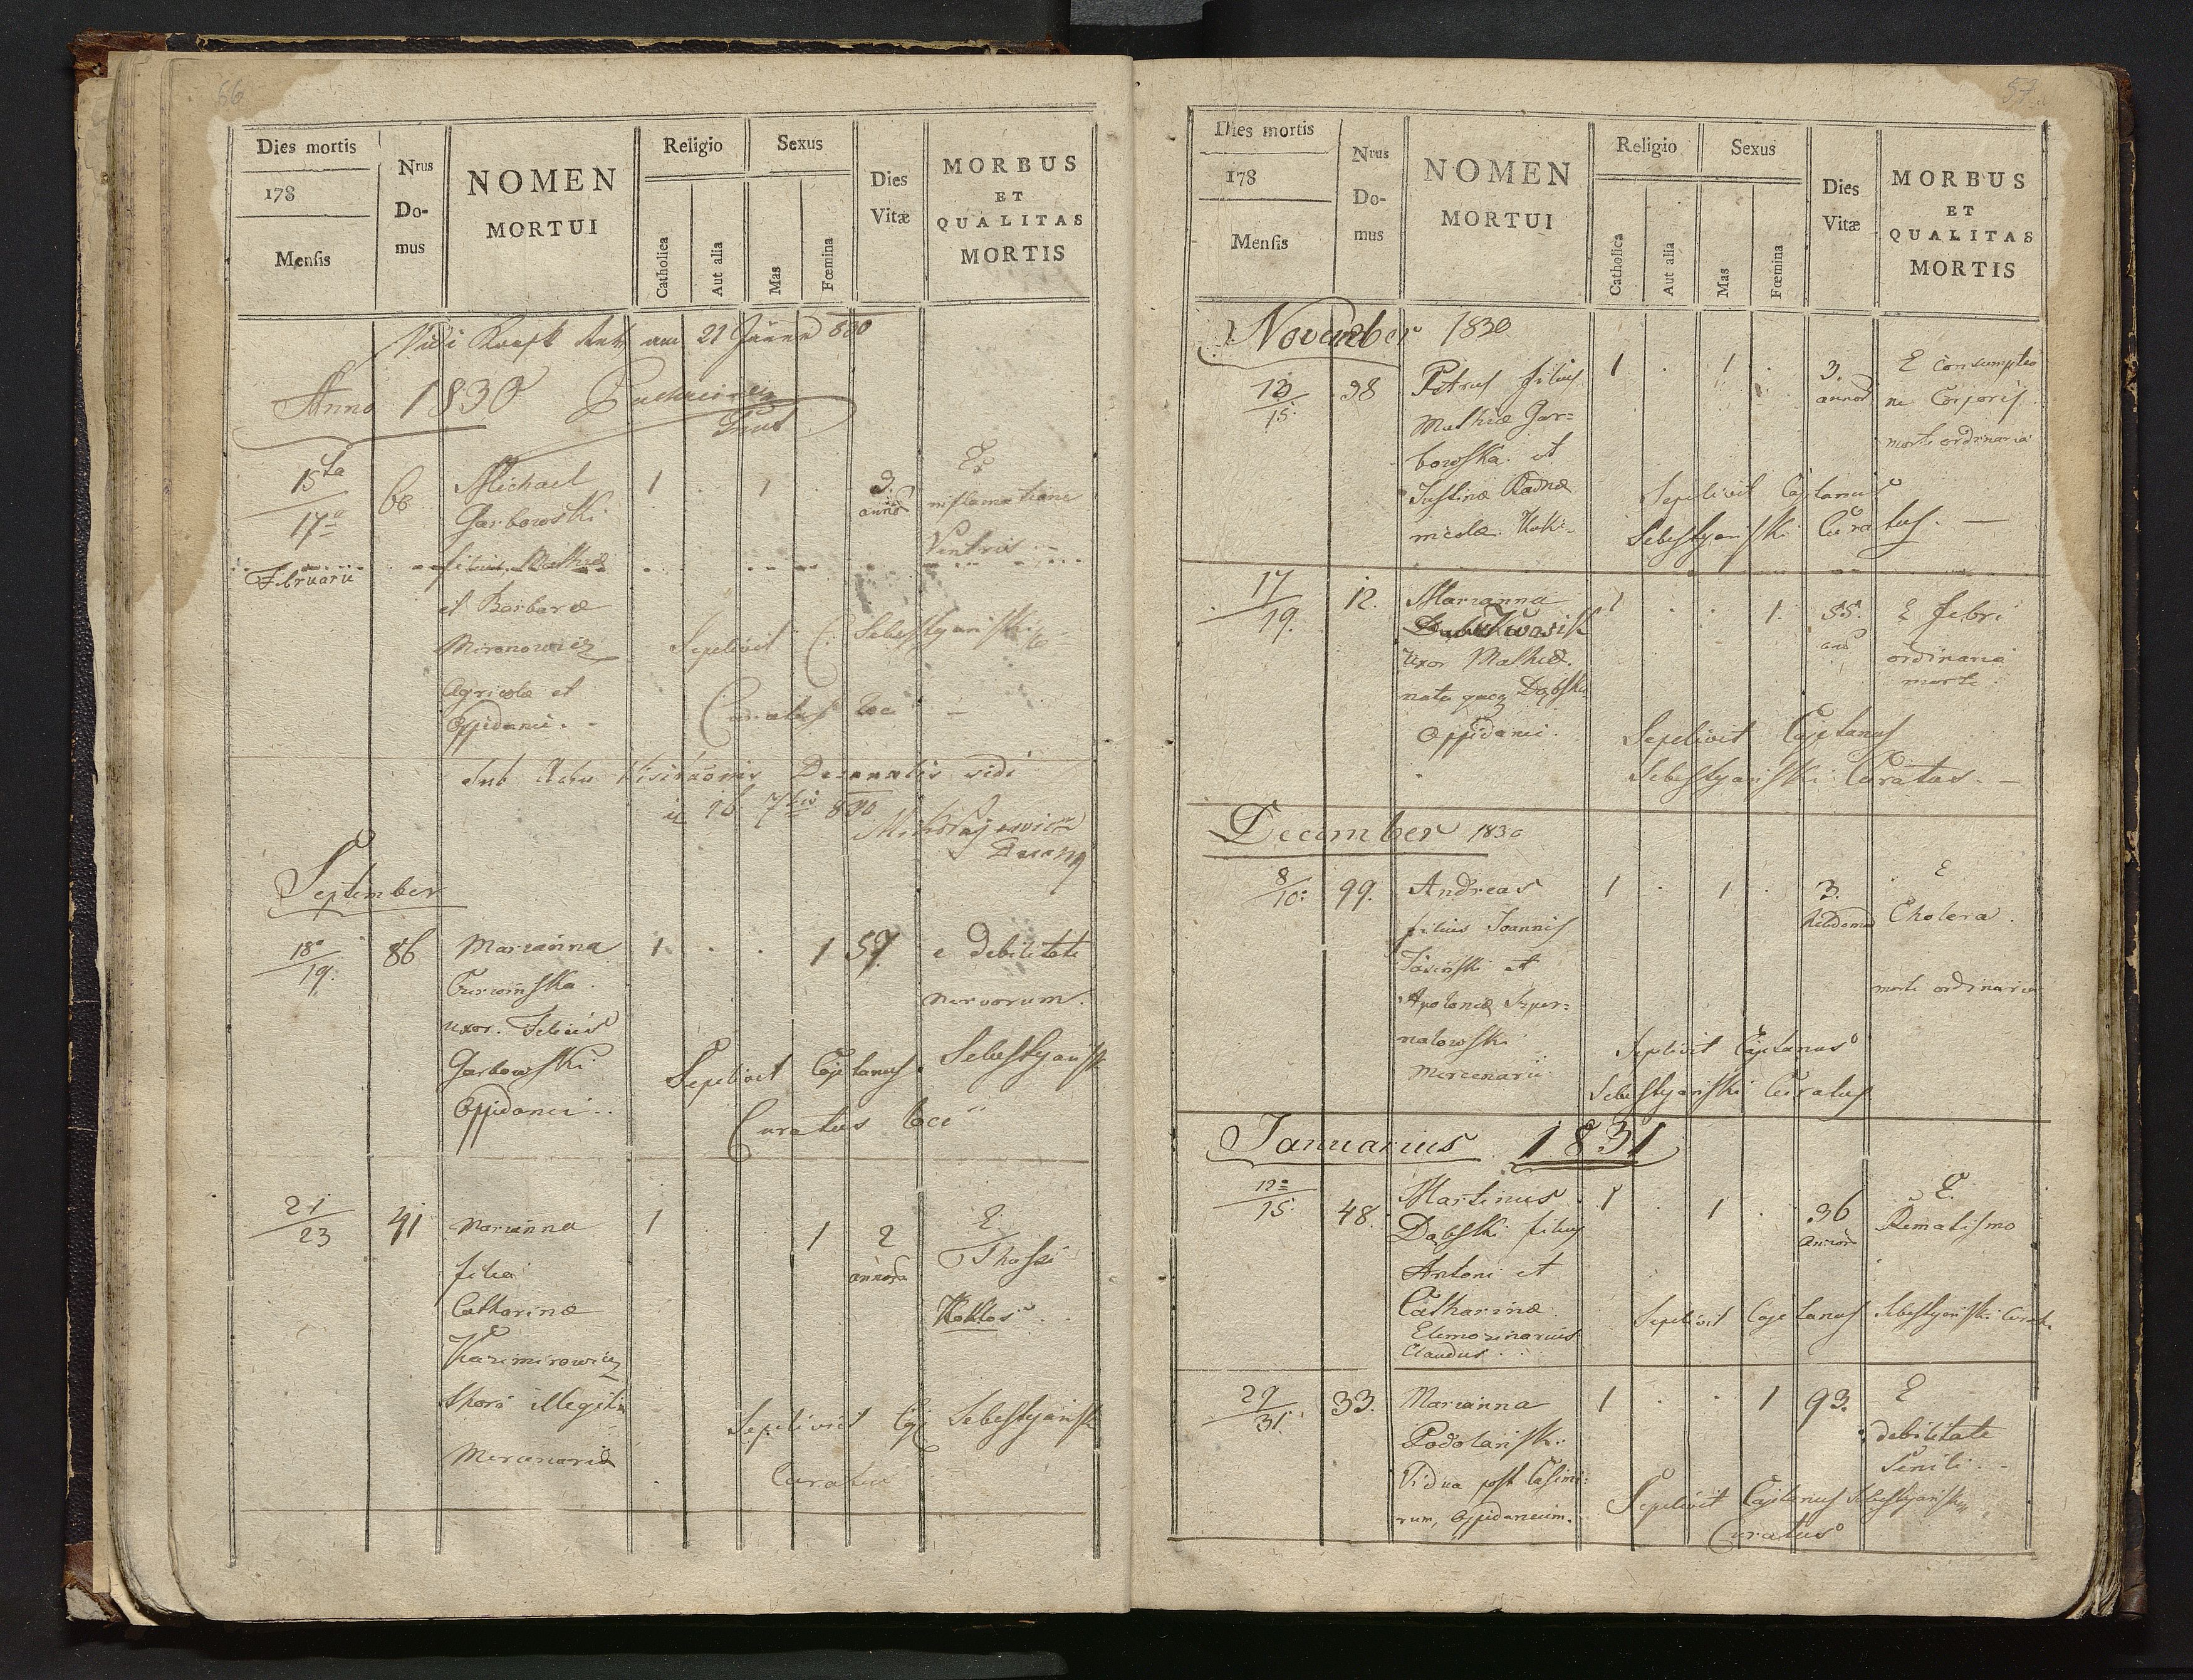 66
Dies mortis
178
Mensis
Nrus
Do-
mus
NOMEN
MORTUI
Religio
Catholica
Aut alia
Sexus
Mas
Fœmina
Dies
Vitæ
MORBUS
ET
QUALITAS
MORTIS
am 21 Jänner 830
Anno 1830
15ta
17a
Februarii
68
Michael
Garbowski
filius Mathiæ
et Barbaræ
Mironowicz
Agricolæ et
Oppidanei.
1 . 1 .
3.
annor
Ex
inflamatione
Ventris
Sepelivit C. Sebestyański
Curatus loci
Sub Actu Visitaõnis Decanalis vidi
16 7bris 830
Mikołajewicz
September
18a
19.
86
Marianna
Czerwińska
uxor. Felicis
Garbowski
Oppidanei.
1 . . 1
57
e debilitate
nervorum.
Sepelivit Cajetanus Sebestyański
Curatus loci
21
23
41
Marianna
filia
Catharinæ
Kazimirowicz
thori illegitimi
Mercenariæ
1 . . 1
2
annor
E
Thussi
Koklos
Sepelivit Caje Sebestyański
Curatus
57
Dies mortis
178
Mensis
Nrus
Do-
mus
NOMEN
MORTUI
Religio
Catholica
Aut alia
Sexus
Mas
Fœmina
Dies
Vitæ
MORBUS
ET
QUALITAS
MORTIS
November 1830
13
15.
38
Petrus filius
Mathiæ Gar=
bowska et
Justinæ
1 . 1 .
3.
annor
E Consumptio
ne Corporis
morte ordinaria
Sepelivit Cajetanus
Sebestyański Curatus. —
17
19.
12.
Marianna
Uxor Mathiæ.
nata Dąbska
Oppidanei.
1 . . 1.
55.
E febri
ordinaria
morte
Sepelivit Cajetanus
Sebestyański Curatus. —
December 1830
8
10.
99.
Andreas
filius Joannis
Jasiński et
Apoloniæ Szper=
nalowski
Mercenarii
1 . 1 .
3.
hebdomad
E
Cholera.
morte ordinaria
Sepelivit Cajetanus
Sebestyański Curatus
Januarius 1831
12a
15.
48.
Martinus
Dąbski filius
Antoni et
Catharinæ
Elemozinarius
Claudus.
1 . 1 .
36
annor
E
Rematismo
Sepelivit Cajetanus Sebestyański Curat.
29
31.
33.
Marianna
Podolański
Vidua post Casimi=
rum, Oppidaneum.
1 . . 1
93.
E
debilitate
Senili.
Sepelivit Cajetanus Sebestyański
Curatus